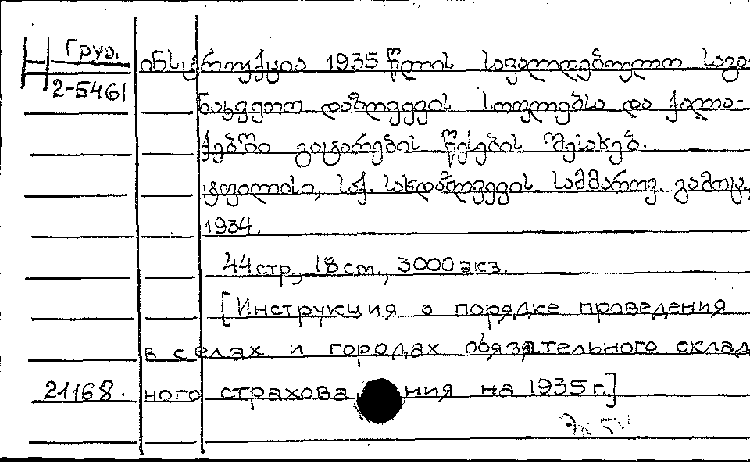 Груз.
2-5461
ინსტრუქცია 1935 წლის სავალდებულო სავა-
ნახველო დაზღვევის სოფლებსა და ქალა-
ქებში გატარების წესების შესახებ.
ტფილისი, საქ. სახდაზღვევის სამმართვ. გამოც.,
1934.
44 стр., 18 cm., 3000 экз.
[Инструкция о порядке проведения
в селах и городах обязательного склад
21168. ного страхования на 1935 г.]